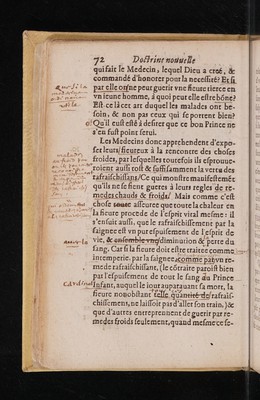 72 Doctrine nouuelle
qui fait le Medecin, lequel Dieu a creé, &
commandé d'honorer pour la necessité? Et si
par elle on ne peut guerir vne fieure tierce en
vn ieune homme, à quoi peut elle estre bõne?
Est-ce là cet art duquel les malades ont be-
soin, & non pas ceux qui se portent bien?
Qu'il eust esté à desirer que ce bon Prince ne
s'en fust point serui.
Les Medecins donc apprehendent d'expo-
ser leurs fieureux à la rencontre des choses
froides, par lesquelles toutefois ils esprouue-
roient assés tost & suffisamment la vertu des
rafraischissans: Ce qui monstre manifestemẽt
qu'ils ne se fient gueres à leurs regles de re-
medes chauds & froids. Mais comme c'est
chose assuree que toute la chaleur en
la fieure procede de l'esprit vital mesme: il
s'ensuit aussi, que le rafraischissement par la
saignee est vn pur espuisement de l'esprit de
vie, & ensemble vne diminution & perte du
sang. Car si la fieure doit estre traitee comme
intemperie, par la saignee, comme par vn re-
mede rafraischissant, (le cõtraire paroist bien
par l'espuisement de tout le sang au Prince
Infant, auquel le iour auparauant sa mort, la
fieure nonobstant telle quantité de rafrais-
chissemens, ne laissoit pas d'aller son train,) &
que d'autres entreprennent de guerir par re-
medes froids seulement, quand mesme ce se-